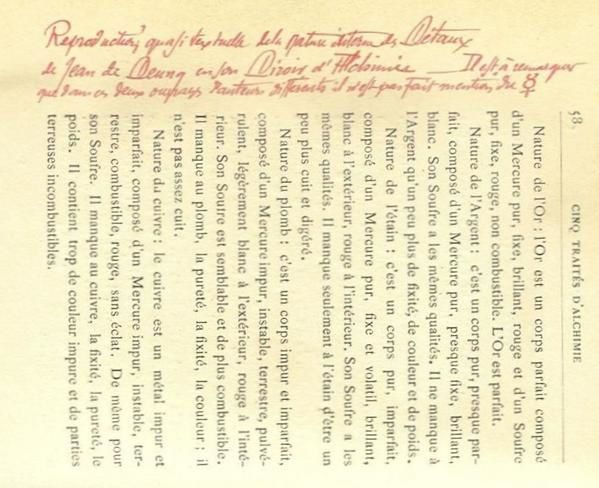 Reproduction quasi textuelle de la nature interne des Métaux
de Jean de Meung en son Miroir d'Alchimie Il est à remarquer
que dans ces deux ouvrages d'auteurs différents il n'est pas fait mention du ☿
58. CINQ TRAITÉS D'ALCHIMIE
Nature de l'Or : l'Or est un corps parfait composé
d'un Mercure pur, fixe, brillant, rouge et d'un Soufre
pur, fixe, rouge, non combustible. L'Or est parfait.
Nature de l'Argent : c'est un corps pur, presque par-
fait, composé d'un Mercure pur, presque fixe, brillant,
blanc. Son Soufre a les mêmes qualités. Il ne manque à
l'Argent qu'un peu plus de fixité, de couleur et de poids.
Nature de l'étain : c'est un corps pur, imparfait,
composé d'un Mercure pur, fixe et volatil, brillant,
blanc à l'extérieur, rouge à l'intérieur. Son Soufre a les
mêmes qualités. Il manque seulement à l'étain d'être un
peu plus cuit et digéré.
Nature du plomb : c'est un corps impur et imparfait,
composé d'un Mercure impur, instable, terrestre, pulvé-
rulent, légèrement blanc à l'extérieur, rouge à l'inté-
rieur. Son Soufre est semblable et de plus combustible.
Il manque au plomb, la pureté, la fixité, la couleur ; il
n'est pas assez cuit.
Nature du cuivre : le cuivre est un métal impur et
imparfait, composé d'un Mercure impur, instable, ter-
restre, combustible, rouge, sans éclat. De même pour
son Soufre. Il manque au cuivre, la fixité, la pureté, le
poids. Il contient trop de couleur impure et de parties
terreuses incombustibles.